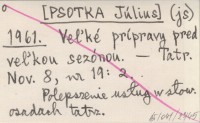 [PSOTKA Július] (jš)
1961. Veľké prípravy pred
veľkou sezónou. — Tatr.
Nov. 8, na 19: 2.
Polepszenie usług w słow.
osadach tatrz.